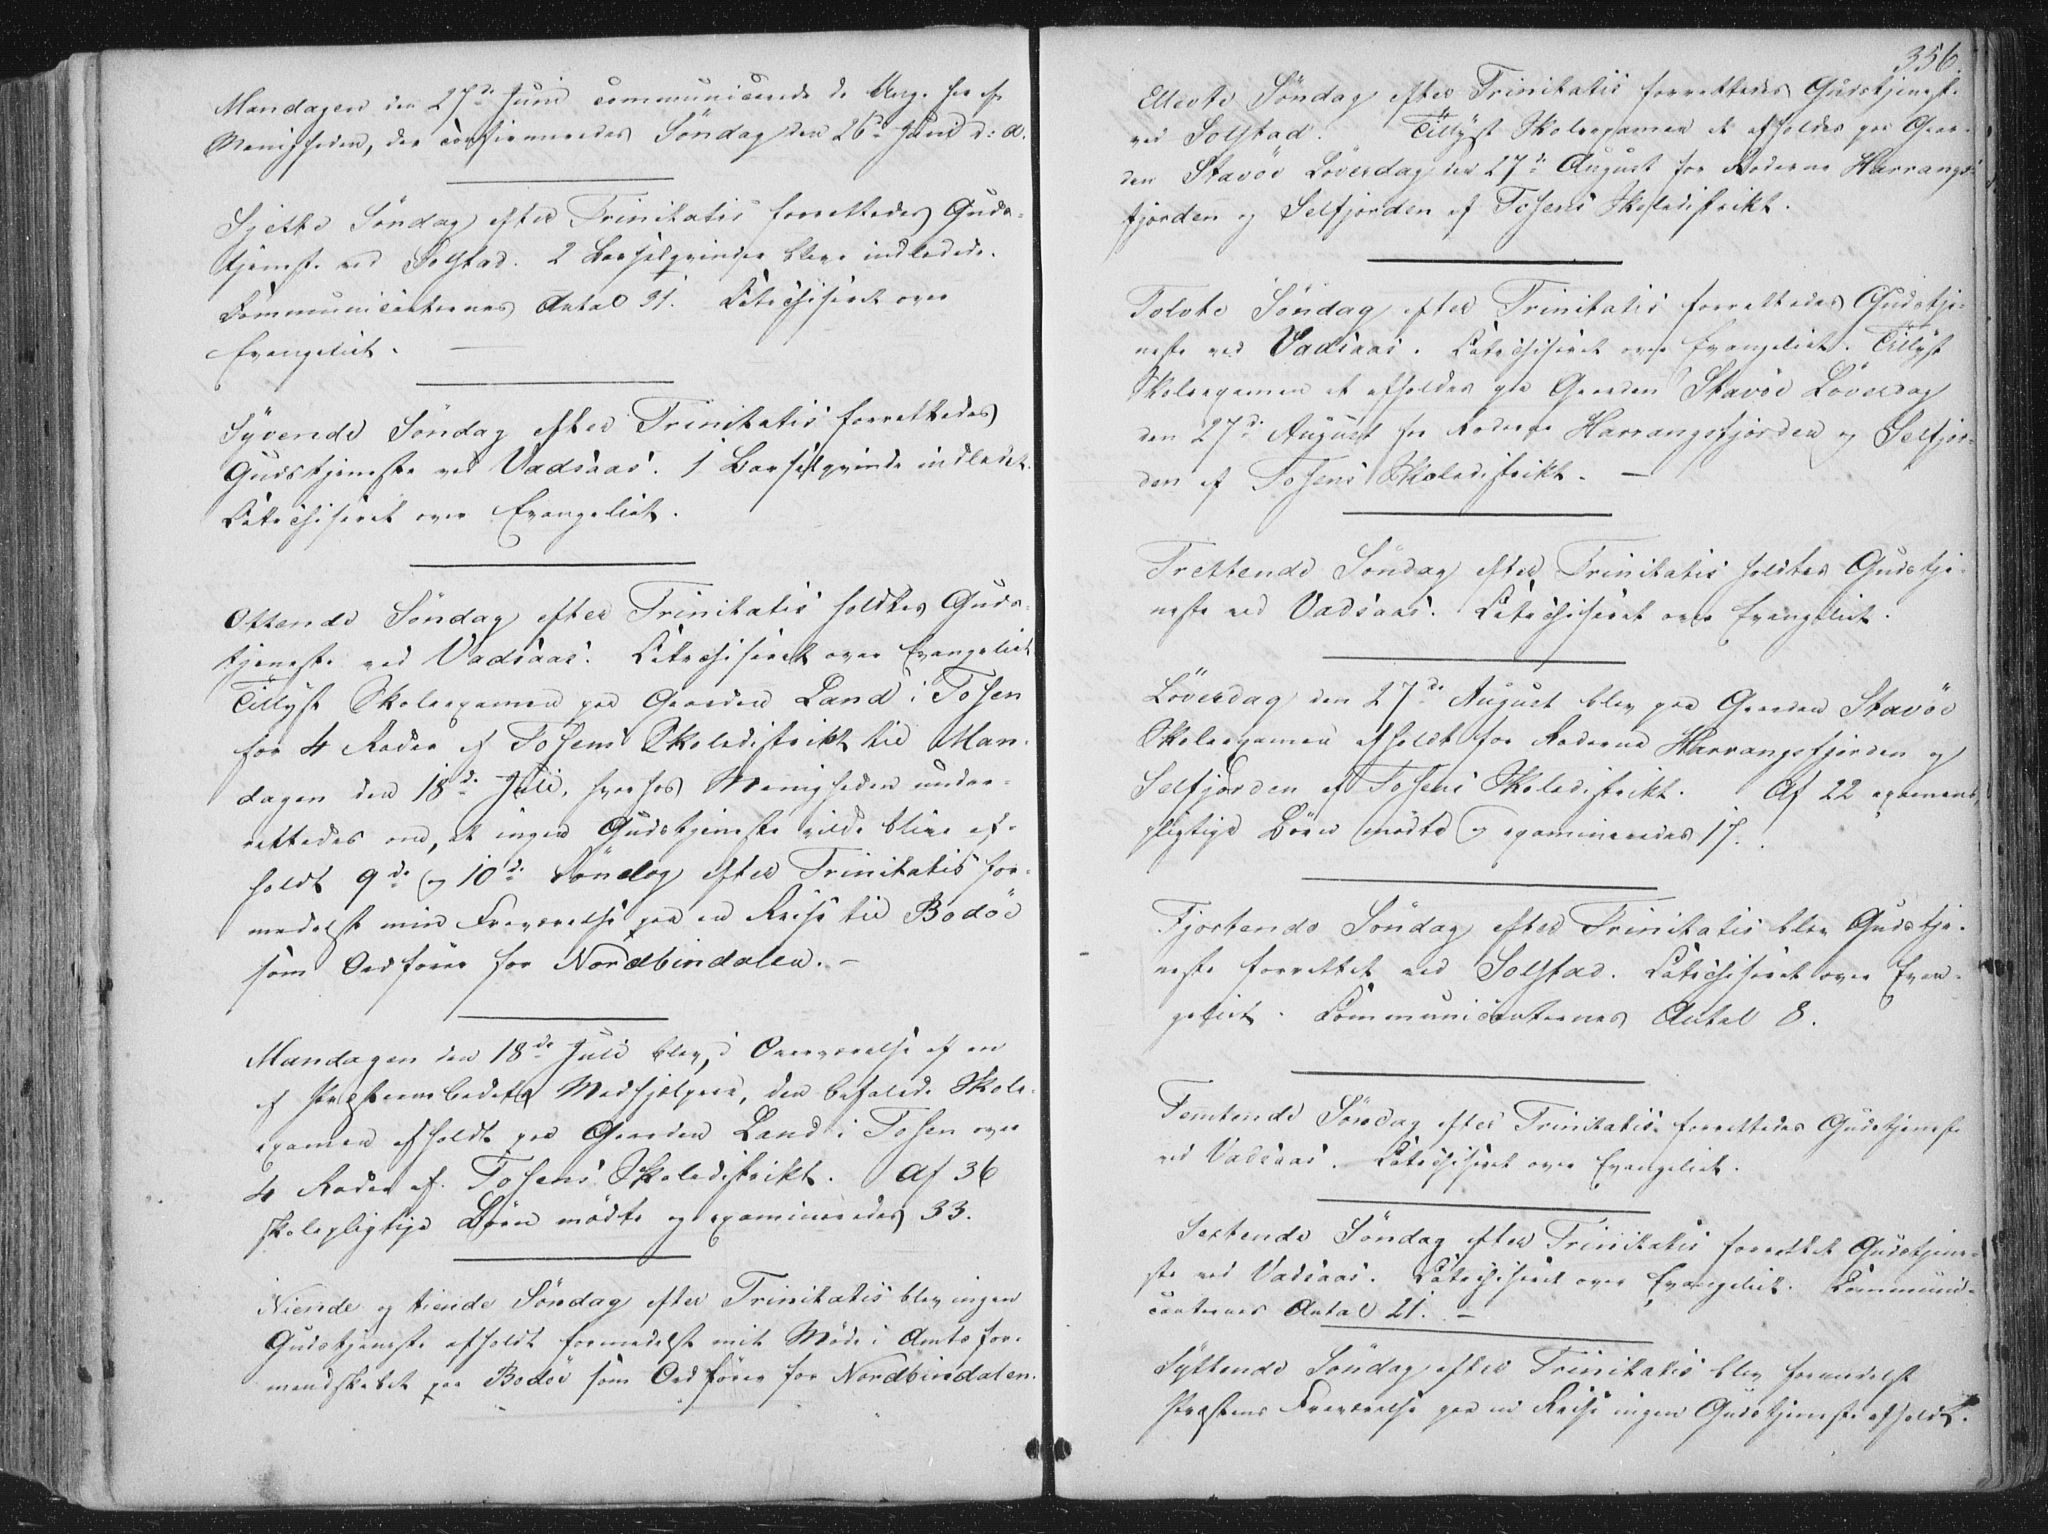 Mandagen den 27de Juni communicerede de Unge her af
Menigheden, der confirmeredes Søndag den 26de Juni d: A.
Sjette Søndag efter Trinitatis forrettedes Guds-
tjeneste ved Solstad. 2 Barselqvinder bleve indledede.
Communicanternes Antal 31. Catechiseret over
Evangeliet. —
Syvende Søndag efter Trinitatis forrettedes
Gudstjeneste ved Vadsaas. 1 Barselqvinde indledet.
Catechiseret over Evangeliet.
Ottende Søndag efter Trinitatis holdtes Guds-
tjeneste ved Vadsaas. Catechiseret over Evangeliet
Tillyst Skoleexamen paa Gaarden Land i Tosen
for 4 Roder af Tosens Skoledistrikt til Man-
dagen den 18de Juli, hvorhos Menigheden under-
rettedes om, at ingen Gudstjeneste vilde blive af-
holdt 9de og 10de Søndag efter Trinitatis for-
medelst min Fraværelse paa en Reise til Bodöe
som Ordfører for Nordbindalen. —
Mandagen den 18de Juli blev, i Overværelse af en
af Præsteembedets Medhjælpere, den befalede Skole-
examen afholdt paa Gaarden Land i Tosen over
4 Roder af Tosens Skoledistrikt. Af 36
skolepligtige Børn mødte og examineredes 33.
Niende og tiende Søndag efter Trinitatis blev ingen
Gudstjeneste afholdt formedelst mit Møde i Amtsfor-
mandskabet paa Bodöe som Ordfører for Nordbindalen.
356.
Ellevte Søndag efter Trinitatis forrettedes Gudstjeneste
ved Solstad. Tillyst Skoleexamen at afholdes paa Gaar-
den Stavöe Löverdag den 27de August for Roderne Harrangs-
fjorden og Selfjorden af Tosens Skoledistrikt.
Tolvte Søndag efter Trinitatis forrettedes Gudstje-
neste ved Vadsaas. Catechiseret over Evangeliet. Tillyst
Skoleexamen at afholdes paa Gaarden Stavöe Löverdag
den 27de August for Roderne Harrangsfjorden og Selfjor-
den af Tosens Skoledistrikt. —
Trettende Søndag efter Trinitatis holdtes Gudstje-
neste ved Vadsaas. Catechiseret over Evangeliet.
Löverdag den 27de August blev paa Gaarden Stavöe
Skoleexamen afholdt for Roderne Harrangsfjorden og
Selfjorden af Tosens Skoledistrikt. Af 22 examens-
pligtige Börn mödte og examineredes 17.
Fjortende Søndag efter Trinitatis blev Gudstje-
neste forrettet ved Solstad. Catechiseret over Evan-
geliet. Communicanternes Antal 8.
Femtende Söndag efter Trinitatis forrettedes Gudstjeneste
ved Vadsaas. Catechiseret over Evangeliet.
Sextende Söndag efter Trinitatis forrettet Gudstjene-
ste ved Vadsaas. Catechiseret over Evangeliet. Communi-
canternes Antal 21. —
Syttende Söndag efter Trinitatis blev formedelst
Præstens Fraværelse paa en Reise ingen Gudstjeneste afholdt.